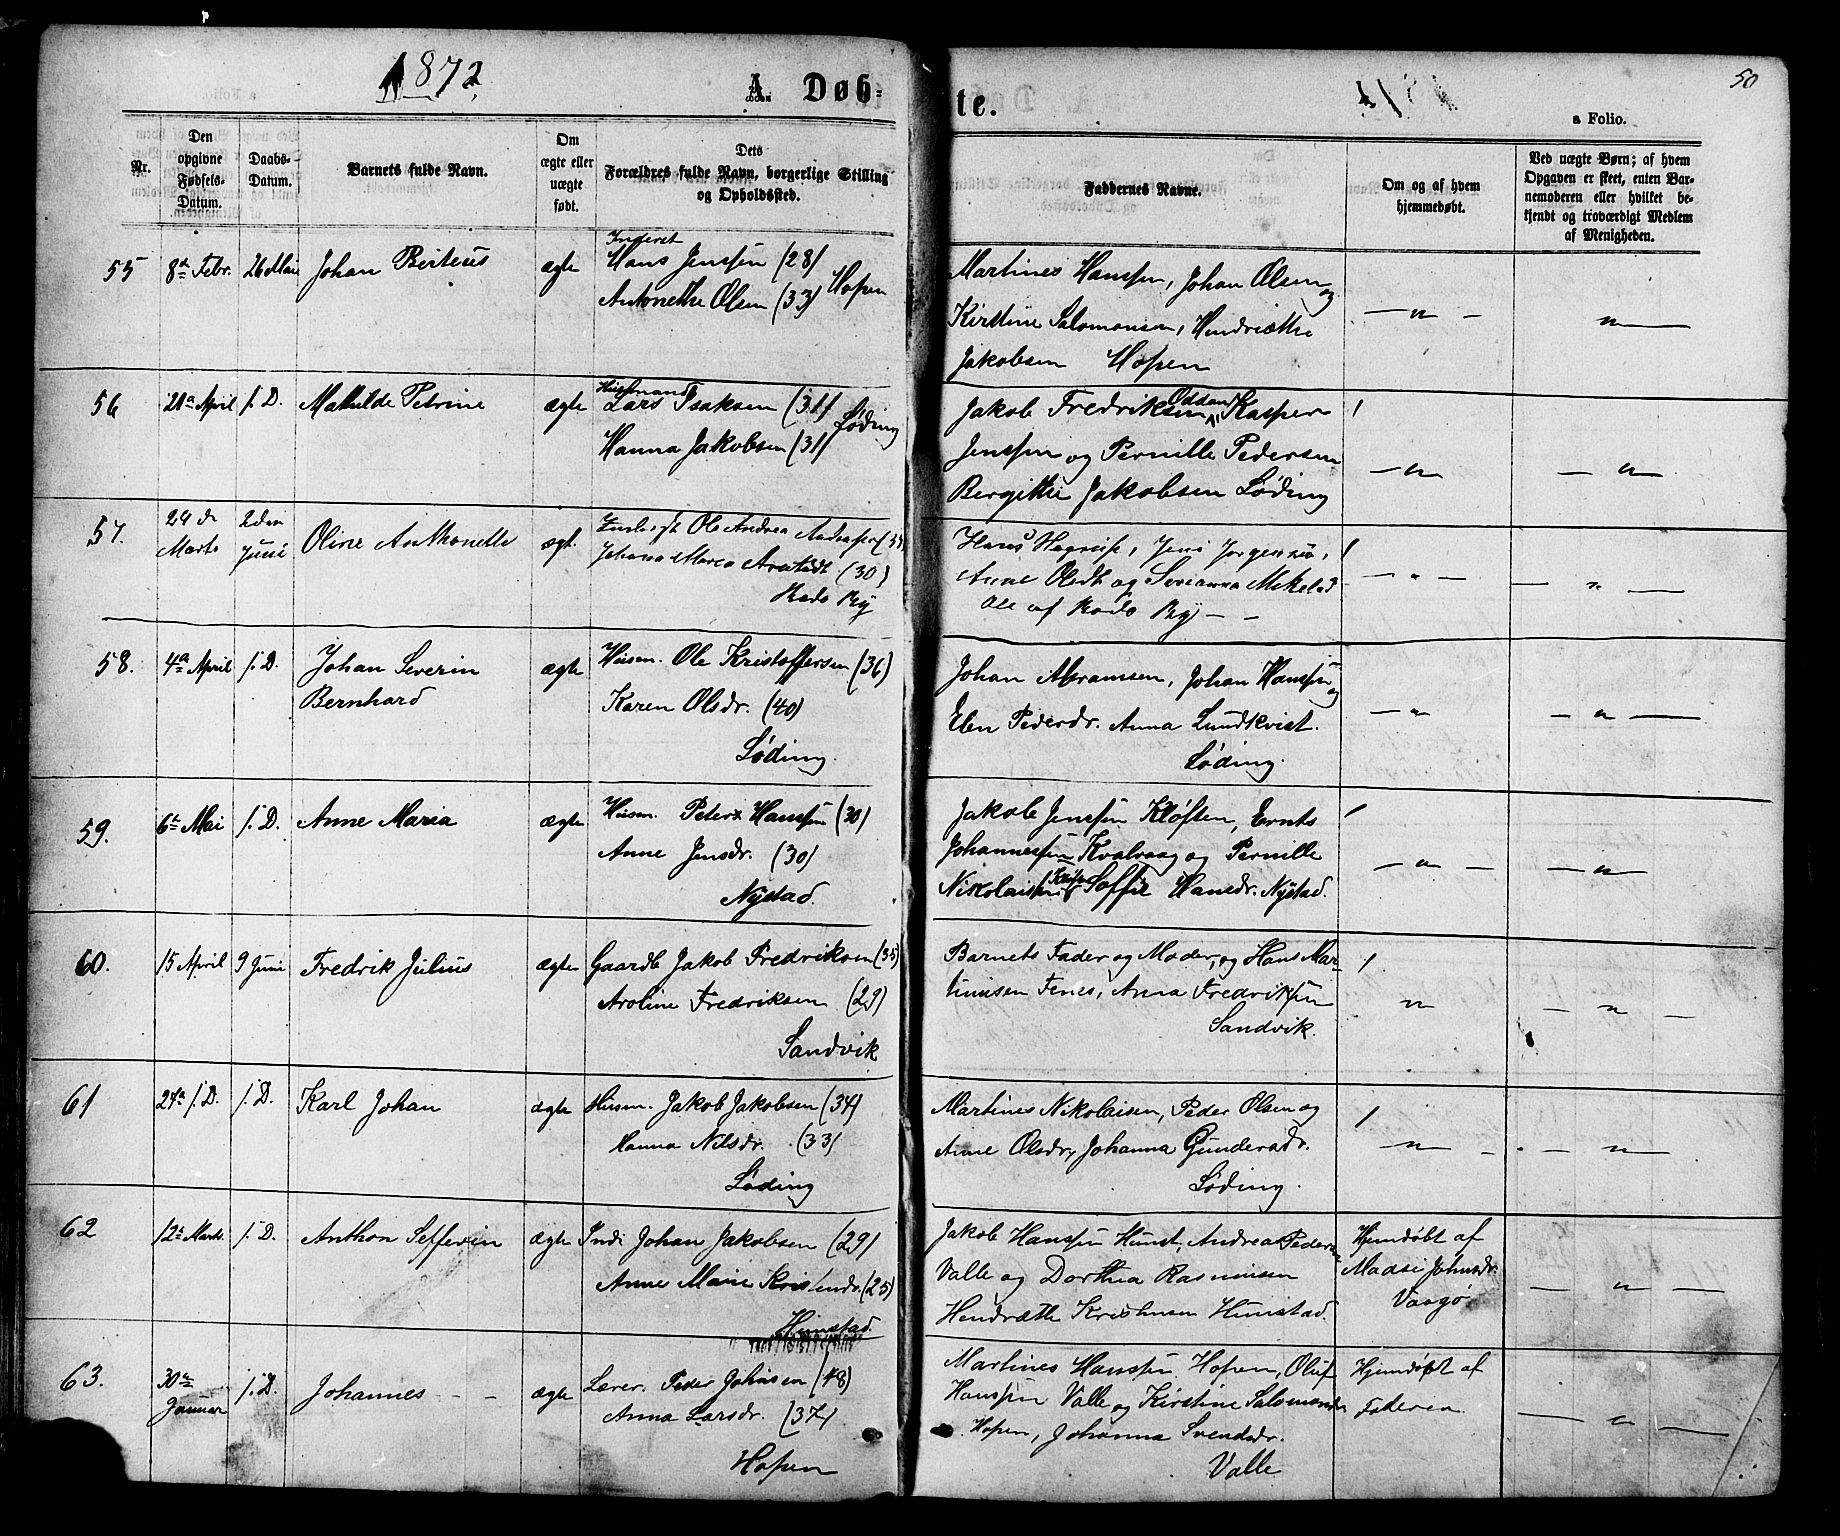 1872
A Døb-
te.
50
a Folio.
Nr.
Den opgivne Fødsels-Datum.
Daabs-Datum.
Barnets fulde Navn.
Om ægte eller uægte født.
Dets Forældres fulde Navn, borgerlige Stilling og Opholdssted.
Faddernes Navne.
Om og af hvem hjemmedøbt.
Ved uægte Børn; af hvem Opgaven er skeet, enten Barnemoderen eller hvilket bekjendt og troværdigt Medlem af Menigheden.
55 8de Febr. 26 Mai Johan Berteus ægte Inderst
Hans Jenssen (28)
Antonethe Olsen (33) Hopen
Martines Hanssen, Johan Olsen og
Kirstine Salomonsen, Hendriethe
Jakobsen Hopen
56 21a April s. D. Mathilde Petrine ægte Husmand
Lars Isaksen (31)
Hanna Jakobsen (31) Løding
Jakob Fredriksen Oddan, Kasper
Jenssen og Pernille Pedersen
Bergithe Jakobsen Løding
57. 24de Marts 2den Juni Oline Anthonette ægt. Ole Andrea
Johanna Marea (30)
Rads By
Hans Hagrup, Jens Jørgensen,
Anne Olsdt og Serianna Mikelsd
Ole af Rads By
58. 4a April s. D. Johan Severin
Bernhard
ægte Husm. Ole Kristoffersen (36)
Karen Olsdr. (40)
Løding
Johan Abramsen, Johan Hanssen og
Elen Pedersdr. Anna Lundkvist.
Løding.
59. 6te Mai s. D. Anne Maria ægte Husm. Peter Hanssen (30)
Anne Jensdr. (30)
Nystad.
Jakob Jenssen Kløften, Ernts
Johannessen Kvalvaag og Pernille
Nikolaissen Soffie Hansdr. Nystad.
60. 15 April 9 Juni Fredrik Julius ægte Gaardb Jakob Fredriksen (35)
Aroline Fredriksen (29)
Sandvik
Barnets Fader og Moder, og Hans Mar-
tinusen Fenes, Anna Fredriksen
Sandvik.
61 27a s. D. s. D. Karl Johan ægte Husm. Jakob Jakobsen (34)
Hanna Nilsdr. (33)
Løding
Martines Nikolaisen, Peder Olsen og
Anne Olsdr, Johanna Gundersdr.
Løding.
62 12te Marts s. D. Anthon Sefferin ægte Indi Johan Jakobsen (29)
Anne Marie Kristensdr. (25)
Himstad.
Jakob Hanssen Hunst, Andreas Pedersen
Valle og Dorthea Rasmusen
Hendrethe Kristensen Himstad.
Hjemdøbt af
Madsi Johnsdr.
Vaagø
63. 30te Januar s. D. Johannes ægte Lærer. Peder Johnsen (48)
Anna Larsdr. (37)
Hopen
Martines Hanssen Hopen, Oluf
Hanssen Valle og Kirstine Salomonsdr
Hopen, Johanna Svendsdr.
Valle
Hjemdøbt af
Faderen